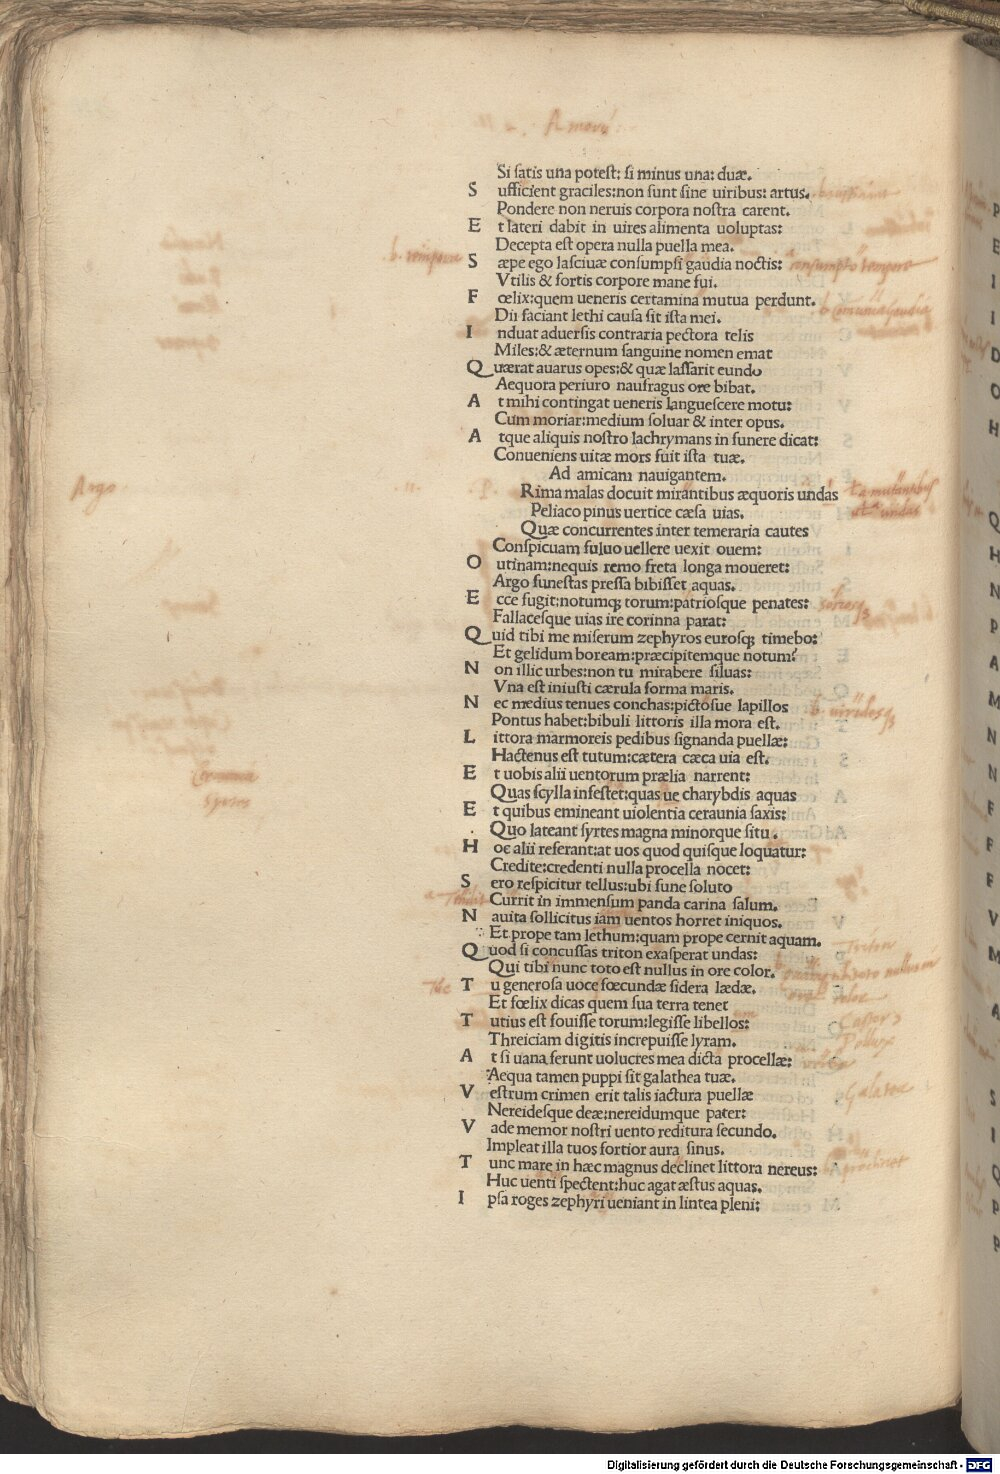 Amorū
Si satis una potest: si minus una: duæ.
S ufficient graciles:non sunt sine uiribus: artus.
Pondere non neruis corpora nostra carent.
E t lateri dabit in uires alimenta uoluptas:
Decepta est opera nulla puella mea.
S æpe ego lasciuæ consumpsi gaudia noctis: consumpto tempore
Vtilis & fortis corpore mane fui.
F œlix:quem ueneris certamina mutua perdunt.
Dii faciant lethi causa sit ista mei.
I nduat aduersis contraria pectora telis
Miles:& æternum sanguine nomen emat
Q uærat auarus opes:& quæ lassarit eundo
Aequora periuro naufragus ore bibat.
A t mihi contingat ueneris languescere motu:
Cum moriar:medium soluar & inter opus.
A tque aliquis nostro lachrymans in funere dicat:
Conueniens uitæ mors fuit ista tuæ.
Ad amicam nauigantem.
Argo
Rima malas docuit mirantibus æquoris undas
Peliaco pinus uertice cæsa uias.
Quæ concurrentes inter temeraria cautes
Conspicuam fuluo uellere uexit ouem:
O utinam:nequis remo freta longa moueret:
Argo funestas pressa bibisset aquas.
E cce fugit:notumqꝫ torum:patriosque penates:
Fallacesque uias ire corinna parat:
Q uid tibi me miserum zephyros eurosqꝫ timebo:
Et gelidum boream:præcipitemque notum?
N on illic urbes:non tu mirabere siluas:
Vna est iniusti cærula forma maris.
N ec medius tenues conchas:pictosue lapillos
Pontus habet:bibuli littoris illa mora est.
L ittora marmoreis pedibus signanda puellæ:
Hactenus est tutum:cætera cæca uia est.
E t uobis alii uentorum prælia narrent:
Quas scylla infestet:quas ue charybdis aquas
E t quibus emineant uiolentia ceraunia saxis:
Quo lateant syrtes magna minorque situ.
H oc alii referant:at uos quod quisque loquatur:
Credite:credenti nulla procella nocet:
S ero respicitur tellus:ubi fune soluto
Currit in immensum panda carina salum.
N auita sollicitus iam uentos horret iniquos.
Et prope tam lethum:quam prope cernit aquam.
Q uod si concussas triton exasperat undas: Triton
Qui tibi nunc toto est nullus in ore color.
T u generosa uoce fœcundæ sidera lædæ.
Et fœlix dicas quem sua terra tenet
T utius est fouisse torum:legisse libellos: Castor
Threiciam digitis increpuisse lyram. Pollux
A t si uana ferunt uolucres mea dicta procellæ:
Aequa tamen puppi sit galathea tuæ.
V estrum crimen erit talis iactura puellæ Galatea
Nereidesque deæ:nereidumque pater:
V ade memor nostri uento reditura secundo.
Impleat illa tuos fortior aura sinus.
T unc mare in hæc magnus declinet littora nereus:
Huc uenti spectent:huc agat æstus aquas.
I psa roges zephyri ueniant in lintea pleni:
Digitalisierung gefördert durch die Deutsche Forschungsgemeinschaft - DFG